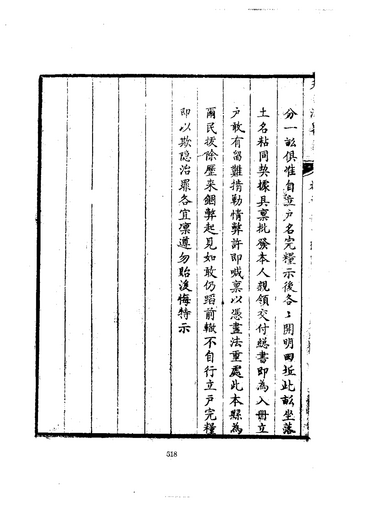 分一訟俱准自立戶名完糧示後各〻開明田坵此畝坐落
土名粘同契據具稟批發本人親領交付總書即為入冊立
戶敢有留難掯勒情弊許即喊稟以憑盡法重處此本縣為
爾民拔除歷來錮弊起見如敢仍蹈前轍不自行立戶完糧
即以欺隱治罪各宜凜遵勿貽後悔特示
518